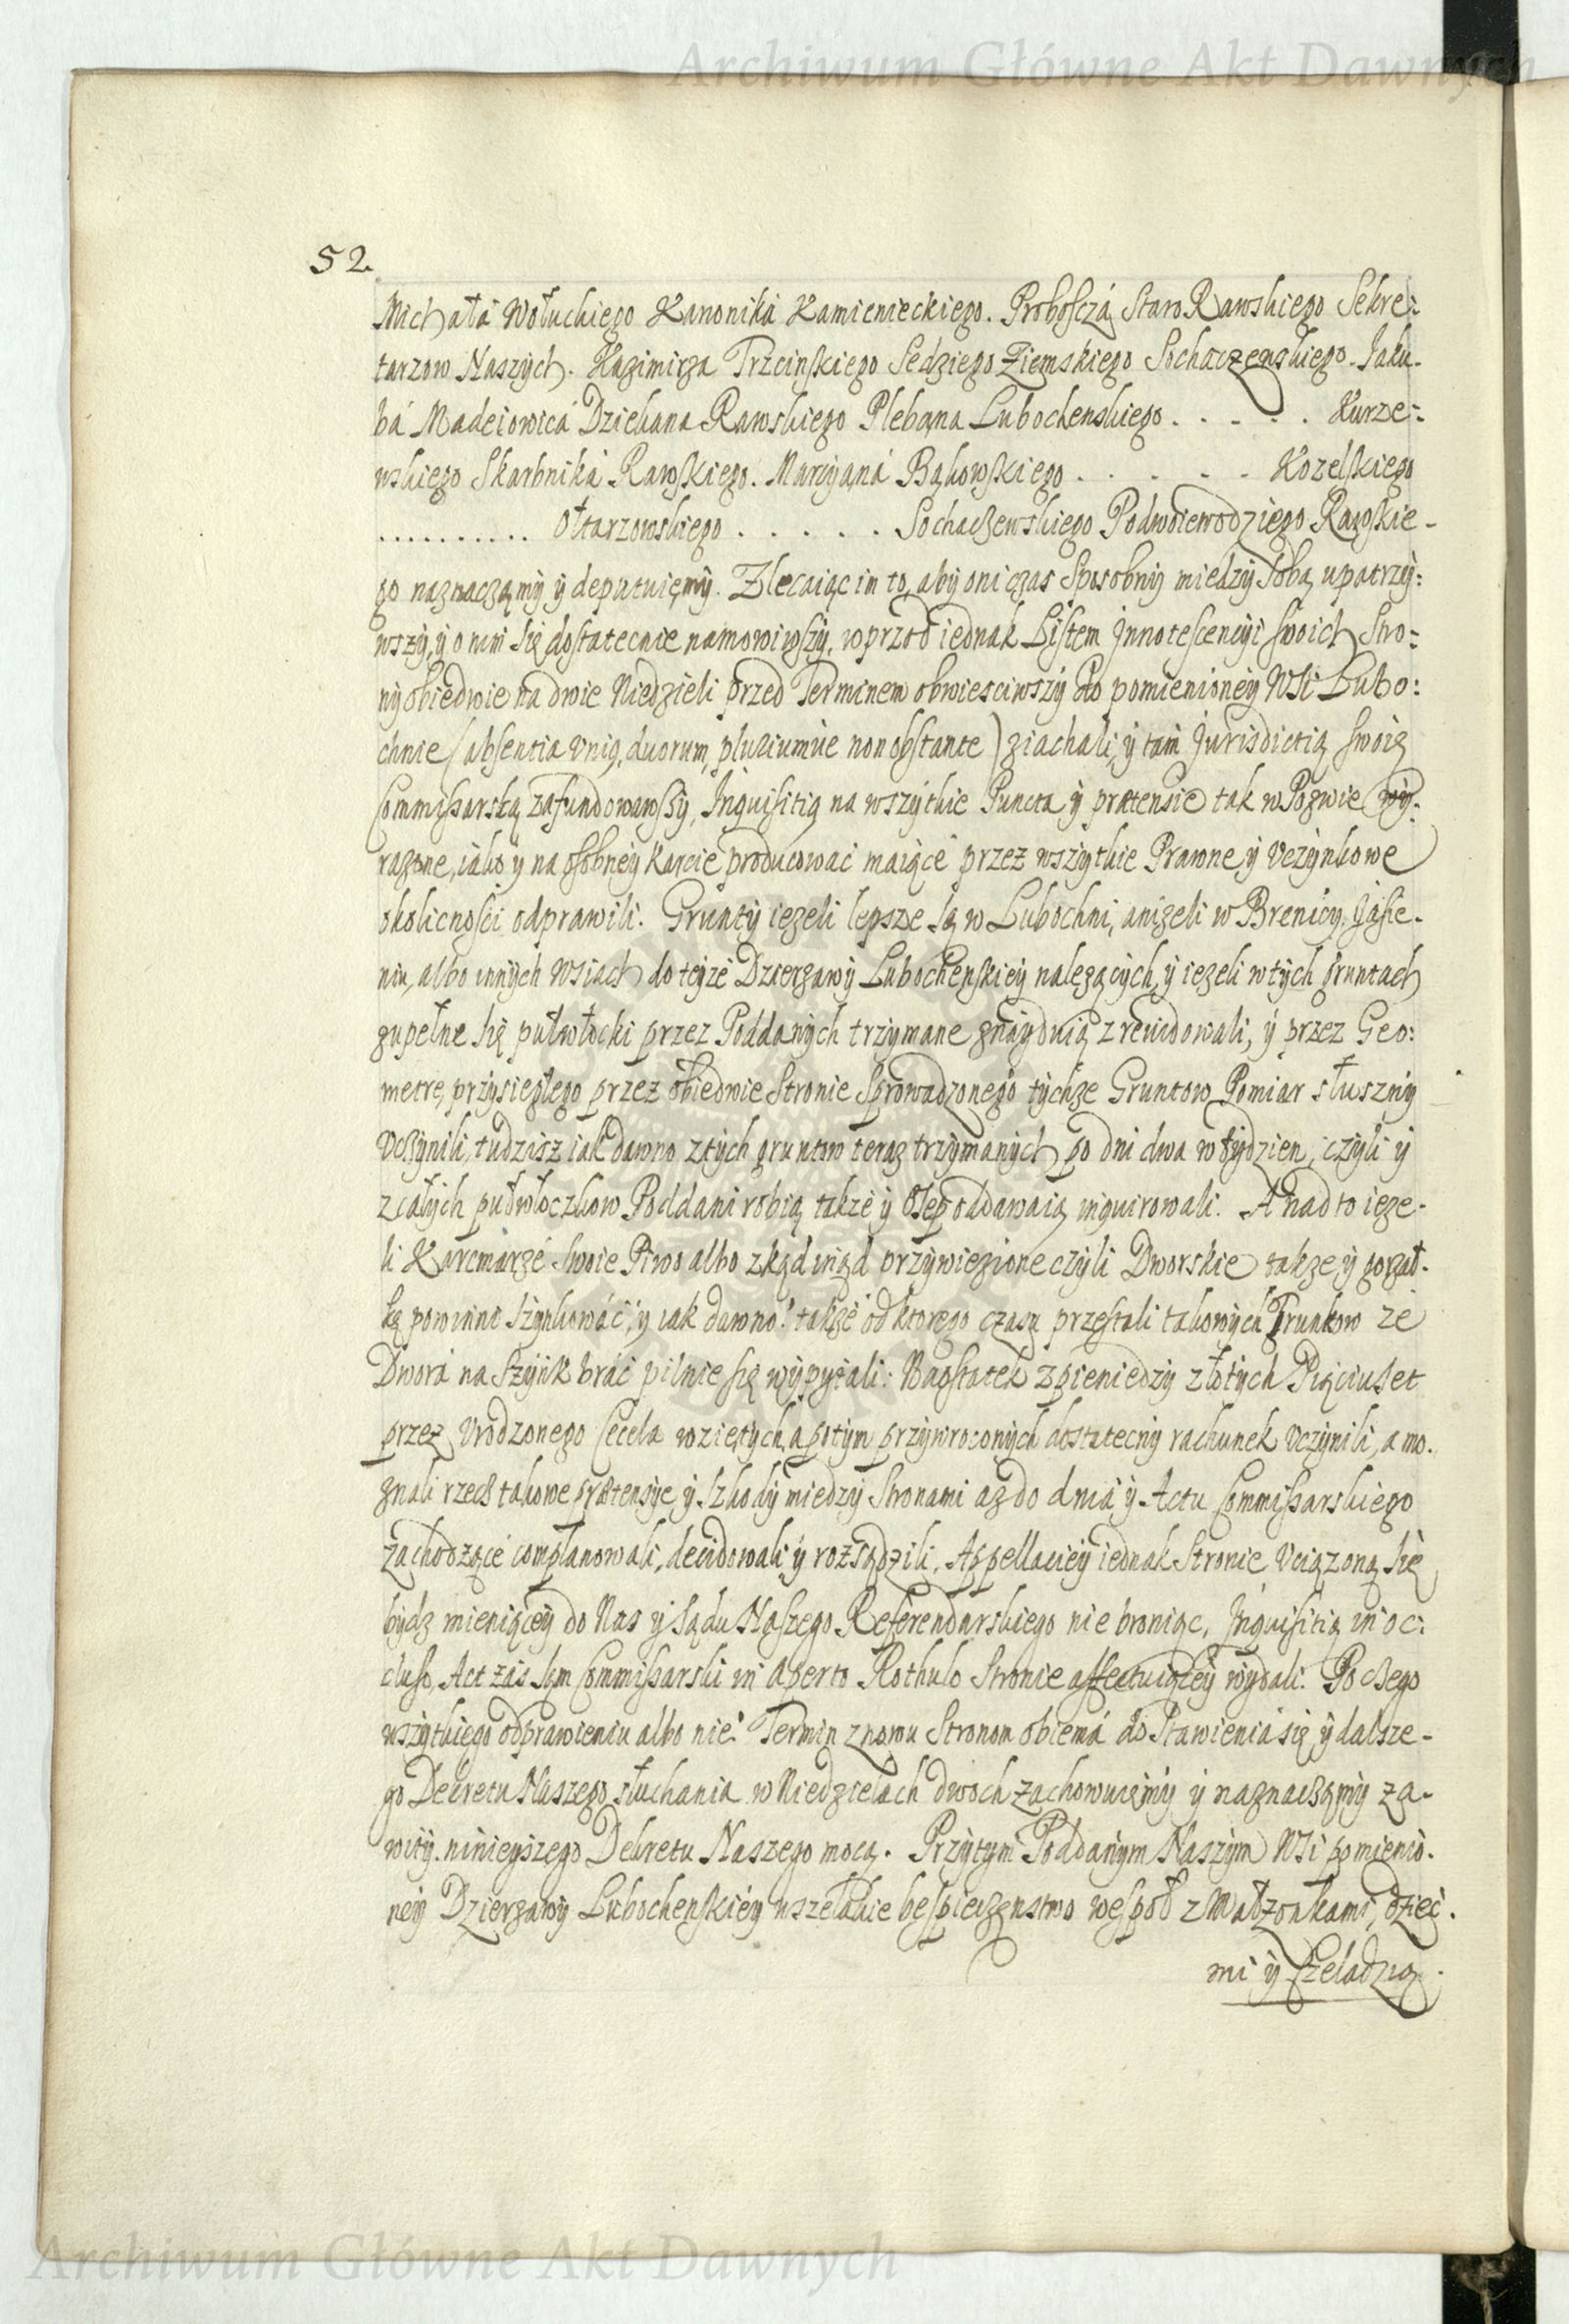 Archiwum Główne Akt Dawnych
52.
Michała Wołuckiego Kanonika Kamienieckiego. Proboscża Staro Rawskiego Sekre:
tarzow Naszych. Kazimirza Trzcinskiego Sędziego Ziemskiego Sochaczewskiego. Jaku-
bá Madeiowicá Dziekana Rawskiego Plebana Lubochenskiego . . . . . Kurze:
wskiego Skarbniká Rawskiego. Marcyaná Bąkowskiego . . . . . Kozelskiego
.......... Ołtarzowskiego . . . . . Sochaczewskiego Podwoiewodziego Rawskie-
go naznaczamy y deputuięmy. Zlecaiąc im to, aby oni czas sposobny miedzy sobą upatrzy:
wszy, y o nim się dostatecnie namowiwszy, wprzod iednak Listem Innotescencyi swoich Stro:
ny obiedwie na dwie Niedzieli przed Terminem obwiesciwszy do pomienioney WSi Lubo:
chnie (absentia unię, duorum, pluriumve non obstante) ziachali, y tam Jurisdictią swoią
Commissarską zafundowawszy, Inquisitią na wszytkie Puncta y prætensie tak w Pozwie wy-
razone, iako y na osobney Karcie producowac maiące przez wszytkie Prawne y Uczynkowe
okolicnosci odprawili. Grunty iezeli lepsze są w Lubochni, anizeli w Brenicy, Jasie-
niu, albo innych WSiach do teyze Dzierzawy Lubochenskiey nalezących, y iezeli w tych gruntach
zupełne się pułwłocki przez Poddanych trzymane znayduią zrewidowali, y przez Geo:
metrę, przysięgłego przez obiedwie Stronie sprowadzonego tychze Gruntow Pomiar słuszny
uczynili, tudzisz iak dawno z tych gruntow teraz trzymanych po dni dwa w tydzien, czyli y
z całych pułwłoczkow Poddani robią takze y Osep oddawaią inquirowali. A nad to ieze-
li Karcmarze swoie Piwo albo zkąd inąd przywiezione czyli Dworskie takze y gorzał-
kę powinni szynkować, y iak dawno? takze od ktorego czasu przestali takowych Trunkow ze
Dwora na Szynk brać pilnie się wypytali: Naostatek z pieniedzy złotych Pięciuset
przez Urodzonego Cecela wziętych, a potym przywroconych dostatecny rachunek uczynili, a mo.
znali rzecz takowe prætensye y szkody miedzy Stronami az do dnia y Actu Commissarskiego
zachodzące complanowali, decidowali y rozsądzili, Appellaciey iednak Stronie uciązoną się
bydz mieniącey do Nas y Sądu Naszego Referendarskiego nie broniąc, Inquisitią in oc:
cluso, Act zas sam Commissarski in aperto Rothulo Stronie affectuiącey wydali. Po czego
wszytkiego odprawieniu albo nie? Termin znowu Stronom obiema do Stawienia się y dalsze-
go Decretu Naszego słuchania w Niedzielach dwoch zachowuięmy y naznaczamy za-
wity ninieyszego Dekretu Naszego mocą. Przytym Poddanym Naszym WSi pomienio-
ney Dzierzawy Lubochenskiey wszelakie bespieczenstwo wespoł z Małzonkami, dzieć-
mi y Czeladzią.
Archiwum Główne Akt Dawnych